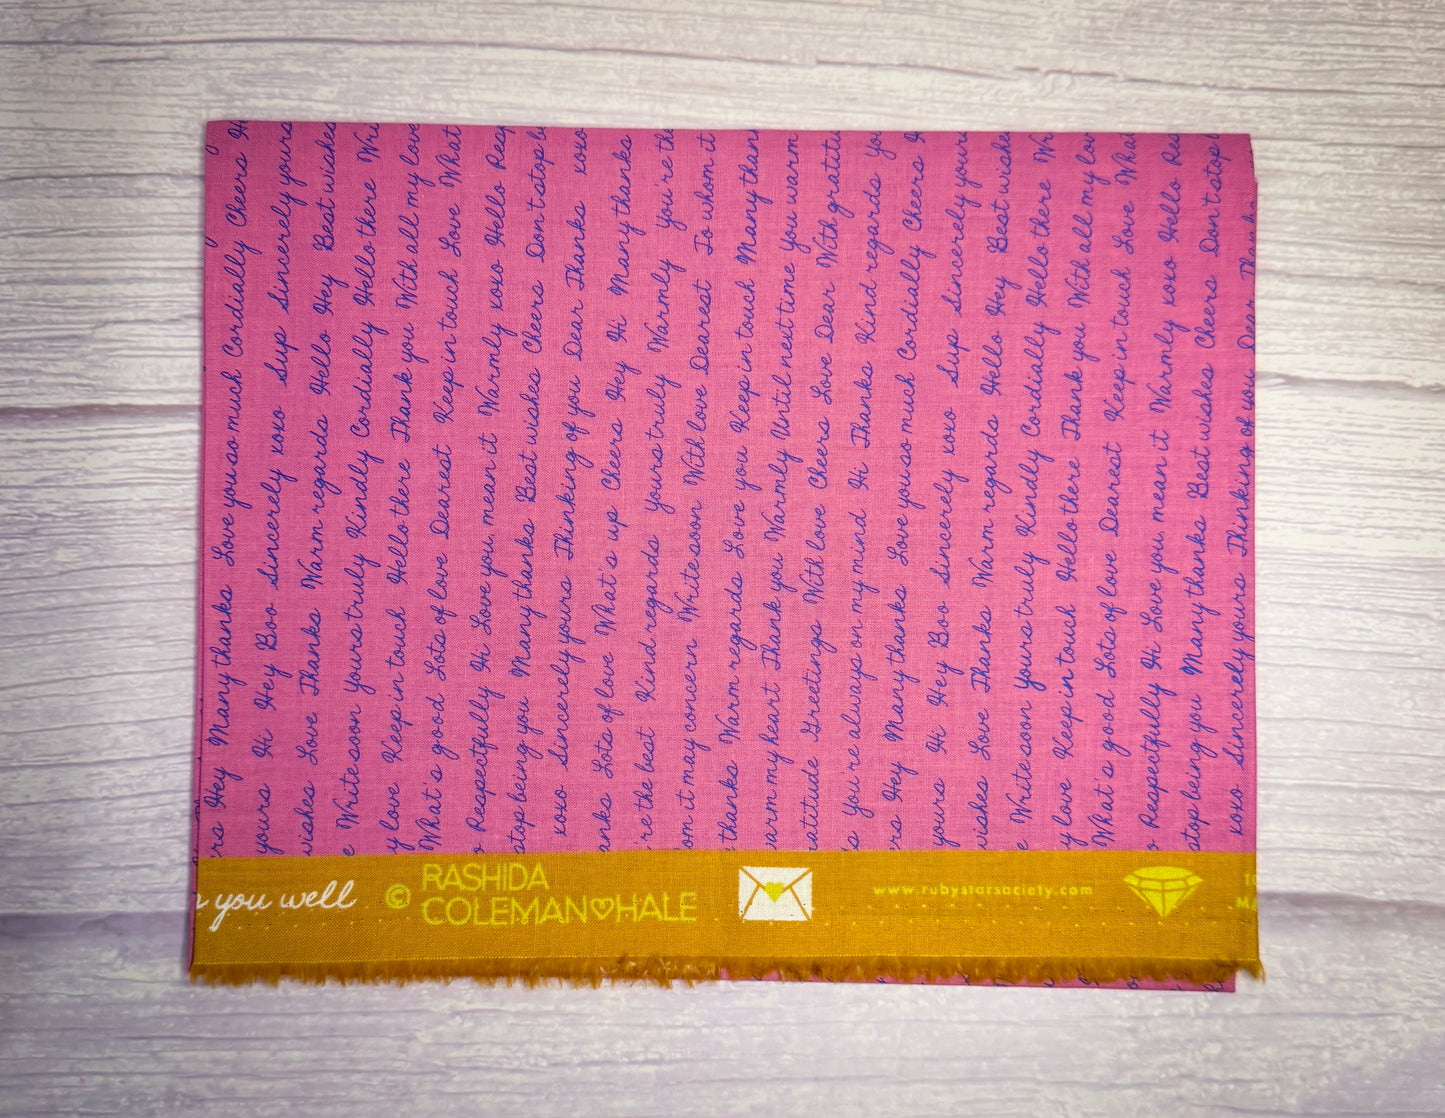 Hey Many thanks Love you so much Cordially Cheers Hi
yours Hi Hey Boo Sincerely xoxo Sup Sincerely yours
wishes Love Thanks Warm regards Hello Hey Best wishes
Write soon Yours truly Kindly Cordially Hello there Wri
y love Keep in touch Hello there Thank you With all my love
What's good Lots of love Dearest Keep in touch Love What
o Respectfully Hi Love you, mean it Warmly xoxo Hello Resp
stop being you Many thanks Best wishes Cheers Don't stop be
xoxo Sincerely yours Thinking of you Dear Thanks xoxo
anks Lots of love What's up Cheers Hey Hi Many thanks
're the best Kind regards Yours truly Warmly You're the
om it may concern Write soon With love Dearest To whom it
thanks Warm regards Love you Keep in touch Many thank
warm my heart Thank you Warmly Until next time You warm
ratitude Greetings With love Cheers Love Dear With gratitu
s You're always on my mind Hi Thanks Kind regards You
rs Hey Many thanks Love you so much Cordially Cheers H
yours Hi Hey Boo Sincerely xoxo Sup Sincerely yours
wishes Love Thanks Warm regards Hello Hey Best wishe
e Write soon Yours truly Kindly Cordially Hello there Wr
y love Keep in touch Hello there Thank you With all my lov
What's good Lots of love Dearest Keep in touch Love Wha
o Respectfully Hi Love you, mean it Warmly xoxo Hello Res
stop being you Many thanks Best wishes Cheers Don't stop
xoxo Sincerely yours Thinking of you Dear Thanks
you well
© RASHIDA
COLEMAN HALE
www.rubystarsociety.com